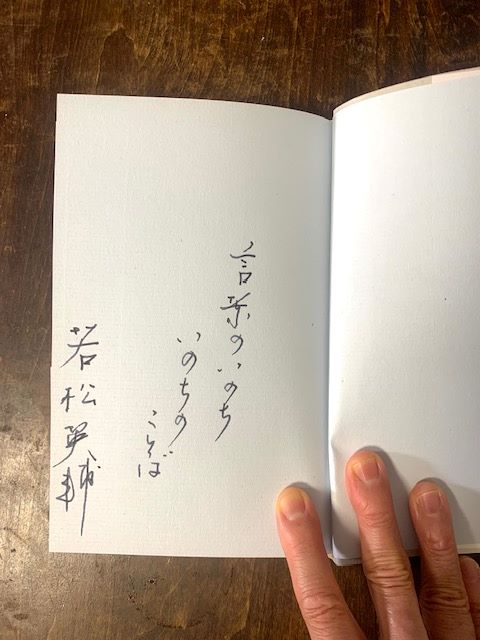 言葉のいのち
いのちの
ことば
若松英輔